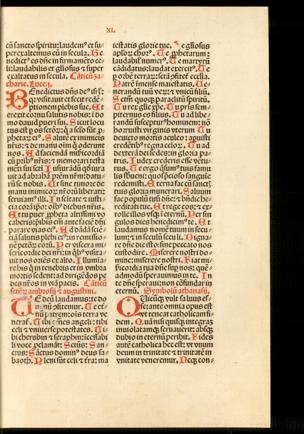 XL
cū sancto spiritu: laudem⁹ et su
per exaltemus eū in secula. Be
nedict⁹ es dñe in firmamēto ce
li: laudabilis et gliosus ⁊ super
exaltatus in secula. Cāticū za
charie. Luce.j.
Benedictus dñs de⁹ isrl:
qr visitauit et fecit redē
ptionem plebis sue. Et
erexit cornu salutis nobis: in do
mo dauid pueri sui. Sicut locu
tus est
Salutē ex inimicis
nris: ⁊ de manu oīm qui oderunt
nos. Ad faciendā misericordiā
cū prib⁹ nris: ⁊ memorari testa
mēti sui scti. Jusiurandū qd iura
uit ad abraā prem nrm: datu
rū se nobis. Ut sine timore de
manu inimicorū nroꝝ liberati
seruiam⁹ illi. In sctitate ⁊ iusti
cia corā ipso: oīb⁹ dieb⁹ nris.
Et tu puer ppheta altissimi vo
caberis: preibis em̄ ante faciē dñi
parare vias ei⁹. Ad dādā sciē
tiā salutis plebi ei⁹: in remissio
nē pctōꝝ eoꝝ. Per viscera mi
sericordie dei nri: in qb⁹ visita
uit nos oriēs ex alto. Illumia
re his q in tenebris et in vmbra
mortis sedent: ad dirigēdos pe
des nros in viā pacis. Cāticū
sctoꝝ ambrosij ⁊ augustini.
Te deū laudamus: te do
minū cōfitemur. Te eter
nū prem: ois terra ve
nerat̄. Tibi oēs angeli: tibi
celi ⁊ vniuerse potestates. Ti
bi cherubin ⁊ seraphin: īcessabi
li voce pclamāt. Sctūs: San
ctus: Sāctus domin⁹ deus sa
baoth. Pleni sūt celi ⁊ fra: ma
iestatis glorie tue. Te gliosus
aploꝝ: chor⁹. Te ꝓphetarum:
laudabil' numer⁹. Te martyrū
cādidatus: laudat exercit⁹. Te
ꝑ orbē terraꝝ: scta ꝓfitet̄ ecclia.
Patrē īmense maiestatis. Ue
nerandū tuū verū: ⁊ vnicū filiū.
Sctm̄ quoqꝫ paraclitū spiritū.
Tu rex glorie: xpe. Tu patris:
sempiternus es filius. Tu ad libe
randū suscepturus hominem: nō
horruisti virginis vterum. Tu
deuicto mortis aculeo: aꝑuisti
credētib⁹ regna celoꝝ. Tu ad
dexterā dei sedes: in gloria pa
tris. Iudex crederis: esse vētu
rus. Te ergo q̄sum⁹ tuis famu
lis subueni: quos p̄cioso sanguīe
redemisti. Eterna fac cū sanctꝭ
tuis: gloria munerari. Saluum
fac populū tuū dñe: ⁊ bñdic he
reditati tue. Et rege eos: ⁊ ex
tolle illos vsqꝫ ī eternū. Per sin
gulos dies: bñdicimus te. Et
laudamus nomē tuum in secu
lum: ⁊ in seculum seculi. Digna
re dñe die isto: sine peccato nos
custodire. Miserere nostri do
mine: miserere nostri. Fiat mi
sericordia tua dñe sup nos: que
admodū sperauimus in te. In
te dñe speraui: non cōfundar in
eternum. Symbolū athanasij.
Quicūqꝫ vult saluus es
se: ante omnia opus est
vt teneat catholicā fi
dem. Quā nisi quisqꝫ integrā
inuiolatāqꝫ seruauerit: absqꝫ
dubio in eternū peribit. Fides
autē catholica hec est: vt vnum
deum in trinitate ⁊ trinitatē in
vnitate veneremur. Neqꝫ con-